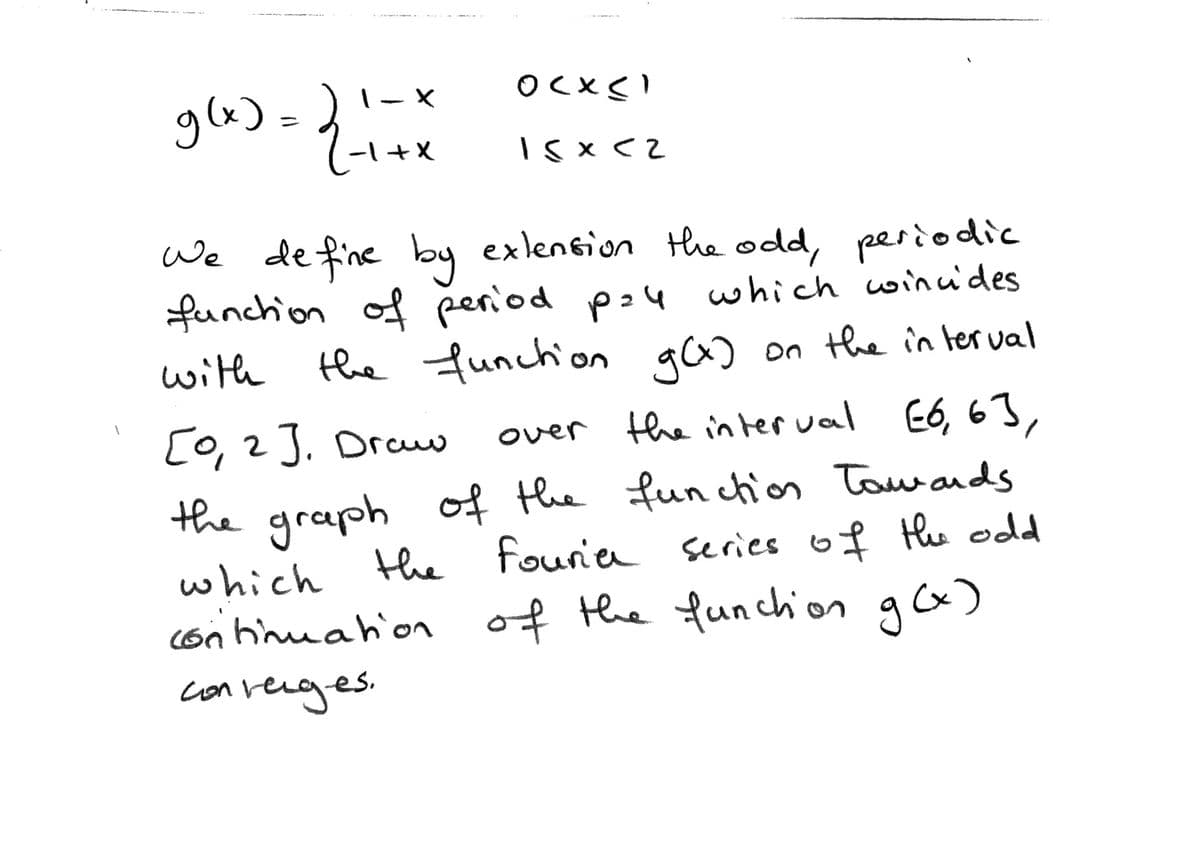 g(x) = { 1-x 0<x≤1
-1+x 1≤x<2
We define by extension the odd, periodic
function of period p=4 which coincides
with the function g(x) on the interval
[0, 2]. Draw over the interval [-6, 6],
the graph of the function Towards
which the Fourier series of the odd
continuation of the function g(x)
converges.